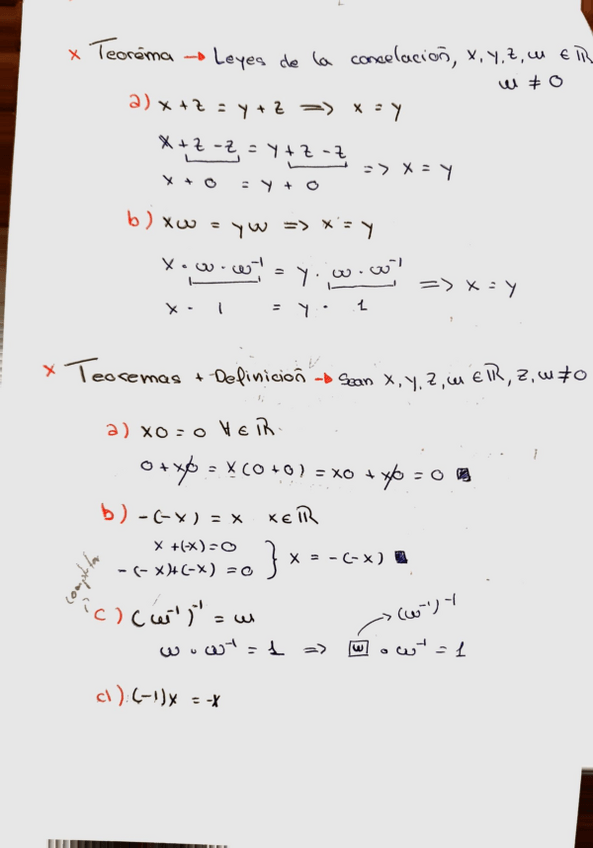 x Teoréma → Leyes de la cancelación, x, y, z, w ∈ ℝ
w ≠ 0
a) x + z = y + z => x = y
x + z - z = y + z - z => x = y
x + 0 = y + 0
b) xw = yw => x = y
x · w · w⁻¹ = y · w · w⁻¹ => x = y
x · 1 = y · 1
x Teoremas + Definición → Sean x, y, z, w ∈ ℝ, z, w ≠ 0
a) x0 = 0 ∀ ∈ ℝ
0 + x0 = x(0+0) = x0 + x0 = 0 ■
b) -(-x) = x x ∈ ℝ
x + (-x) = 0
-(-x)+(-x) = 0 } x = -(-x) ■
c) (w⁻¹)⁻¹ = w
(w⁻¹)⁻¹
w · w⁻¹ = 1 => w · w⁻¹ = 1
d) (-1)x = -x